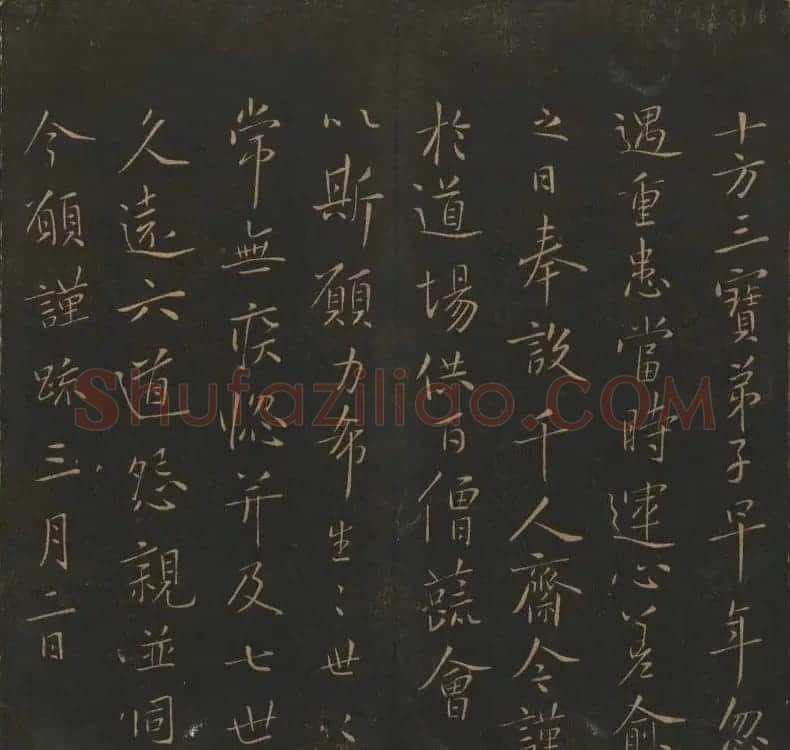 十方三寶弟子早年忽
遇重患當時運心差俞
之日奉設千人齋今謹
於道場供百僧蔬會
以斯願力希生〻世〻
常無疾惱并及七世
久遠六道怨親並同
今願謹疏三月二日
Shufaziliao.COM